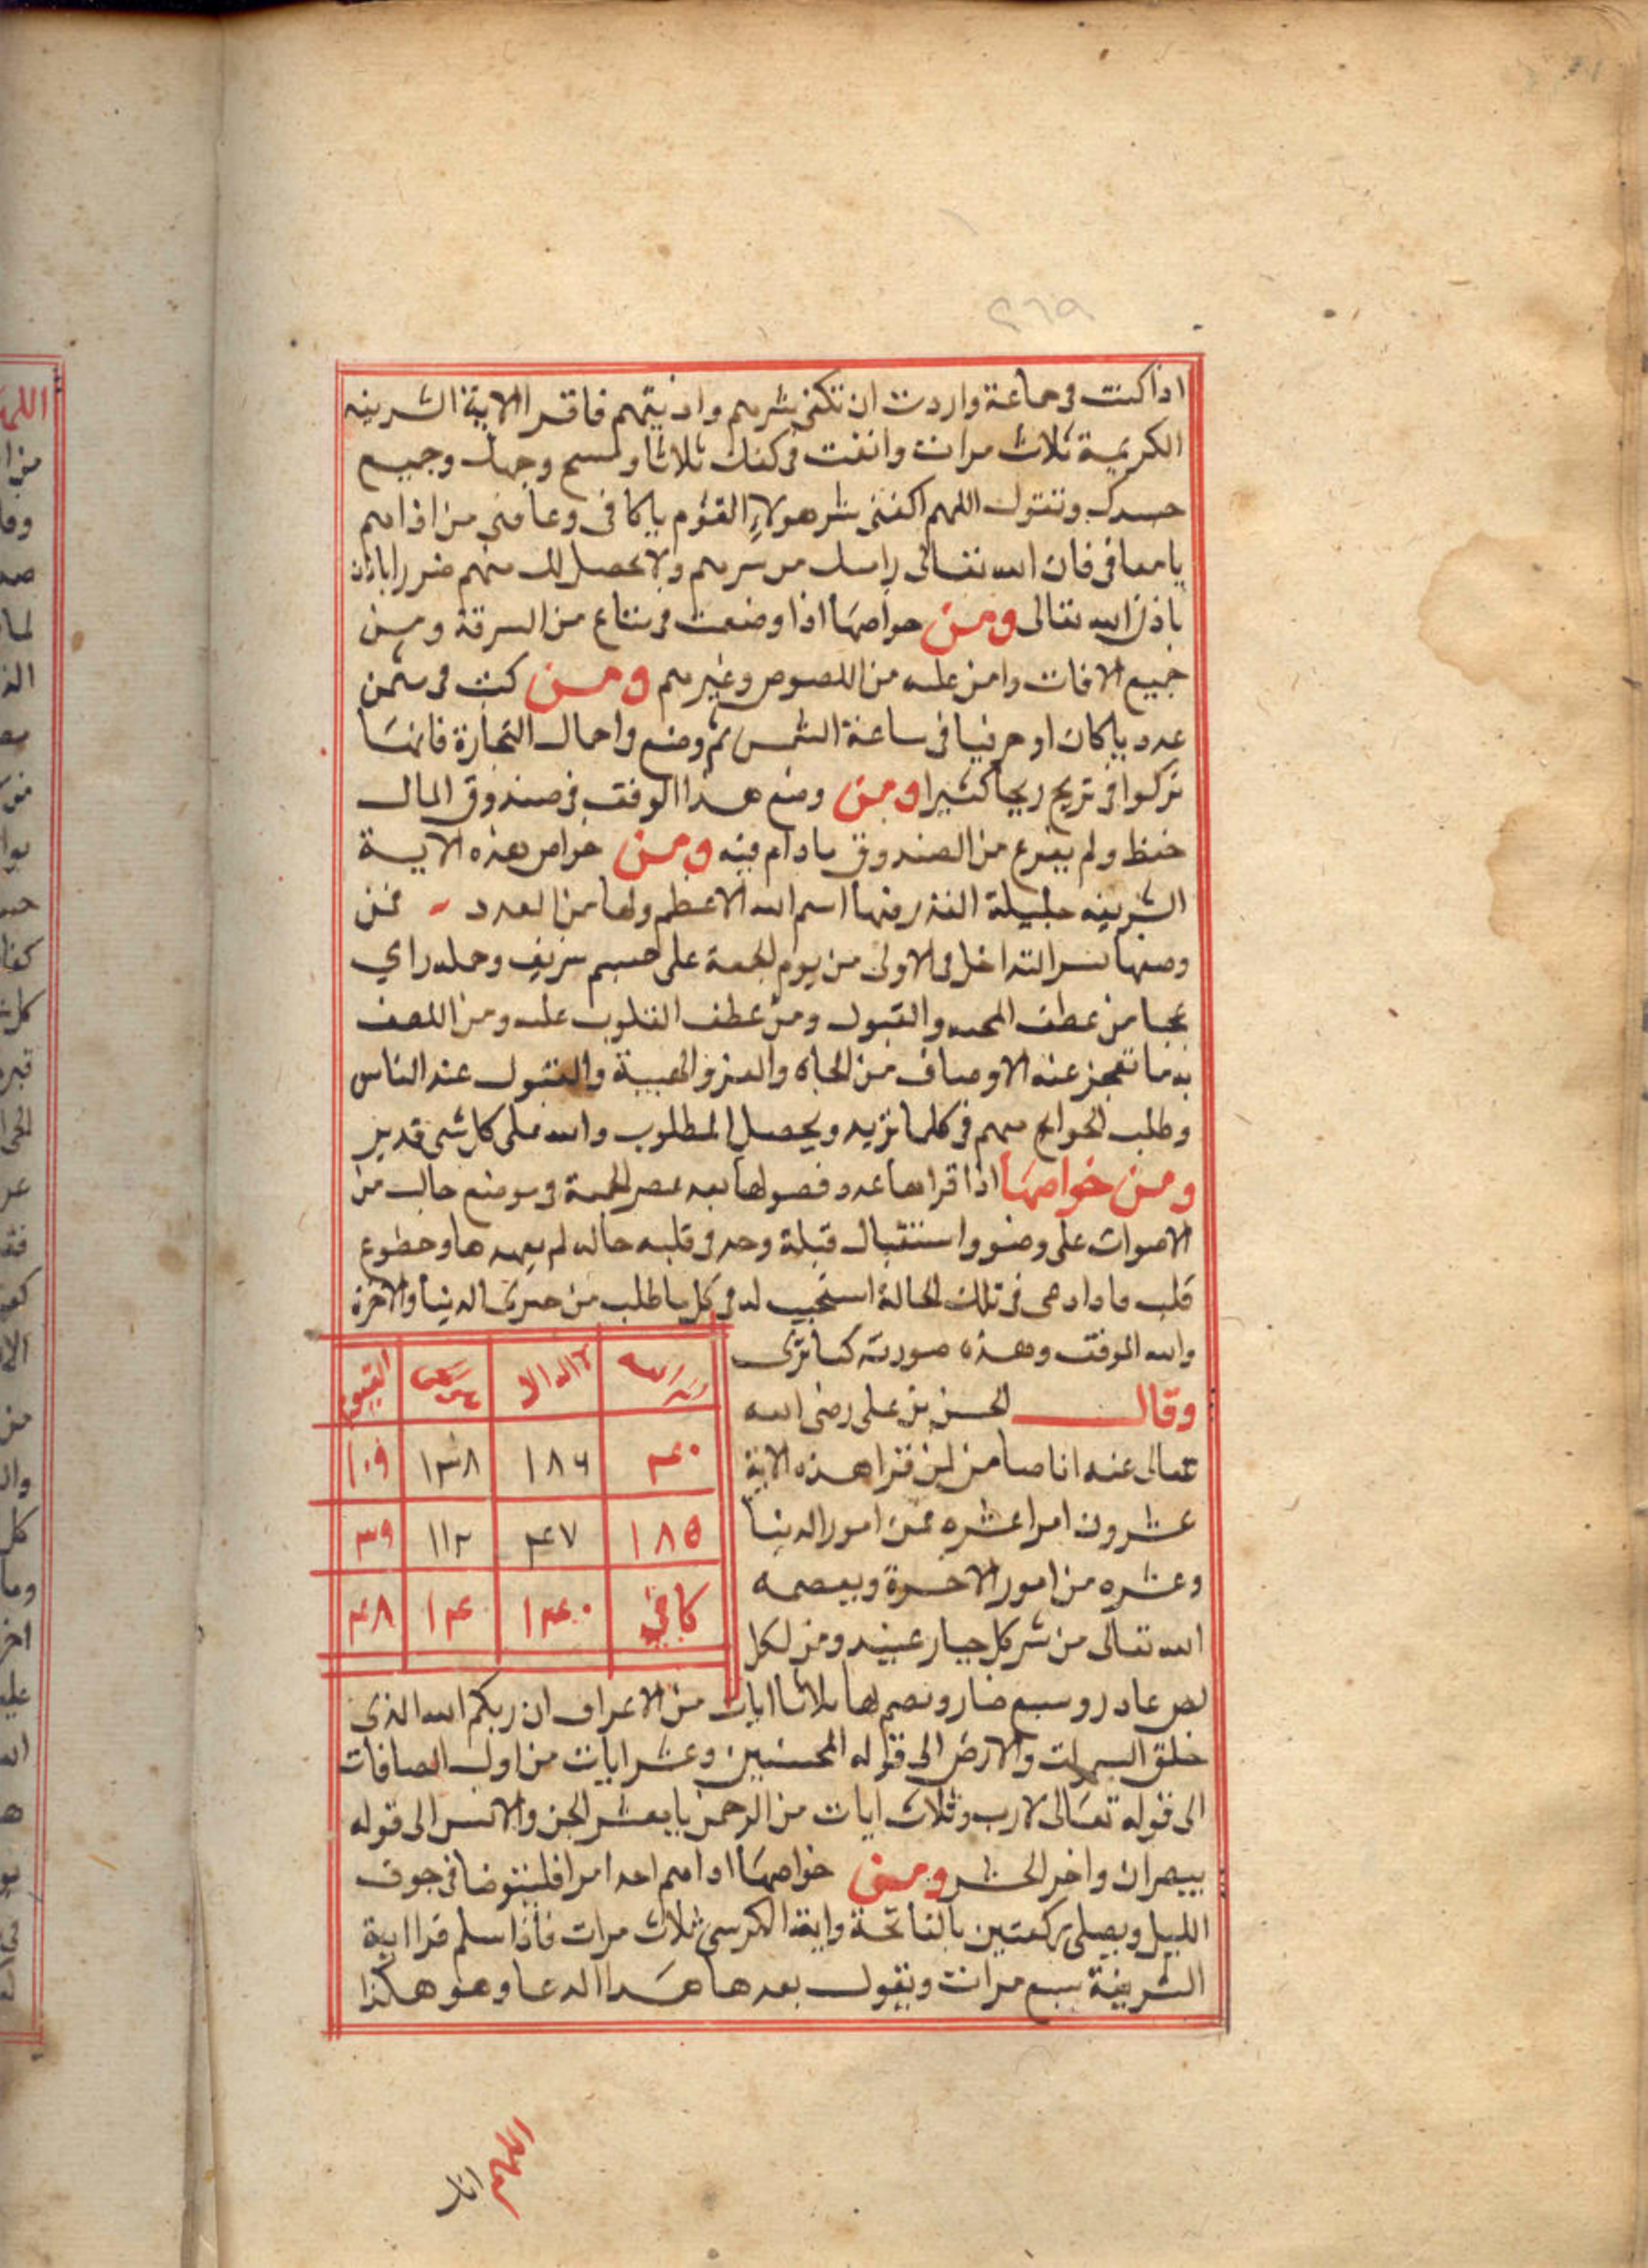 ٢٦٩
اذا كنت فى جماعة واردت ان تكفى شرهم واذيتهم فاقرا الاية الشريفه
الكريمة ثلاث مرات وانفث فى كفك ثلاثا وامسح وجهك وجميع
جسدك وتقول اللهم اكفنى شر هولاء القوم ياكافى وعافنى من اذاهم
يامعافى فان الله تعالى من شرهم ولا يحصل لك منهم ضررا باذن
باذن الله تعالى ومن خواصها اذا وضعت فى متاع من السرقة ومن
جميع الافات وامن عليه من اللصوص وغيرهم ومن كتب فى مثمن
عدد ياكان او حرفيا فى ساعة الشمس ثم وضع واحمال التجارة فانها
تزكوا فى تربح ربحا كثيرا ومن وضع هذا الوفق فى صندوق المال
حفظ ولم يفرغ من الصندوق مادام فيه ومن خواص هذه الاية
الشريفه جليلة القدر فيها اسم الله الاعظم ولها من العدد فمن
وضعها بسر التداخل فى الاولى من يوم الجمعة على جسم شريف وحمله راي
عجبا من عطف المحبه والقبول ومن عطف القلوب عليه ومن اللطف
به ما تعجز عنه الاوصاف من الجاه والعز والهيبة والقبول عند الناس
وطلب الحوايج منهم فى كلما تريد ويحصل المطلوب والله على كل شى قدير
ومن خواصها اذا قراها عدد فصولها بعد عصر الجمعة فى موضع خالى من
الاصوات على وضو واستقبال قبلة وجد فى قلبه حاله لم يعهدها وخضوع
قلب مادادعى فى تلك الحالة استجيب له فى كل ما طلب من خيرى الدنيا والاخرة
والله الموفق وهذه صورته كما ترى
وقال الحسن بن على رضى الله
تعالى عنه انا ضامن لمن قرا هذه الاية
عشرون امرا عشره من امور الدنيا
وعشره من امور الاخرة ويعصمه
الله تعالى من شر كل جبار عنيد ومن لكل
لص عادر وسبع ضار ونضم لها ثلاثا ايات من الاعراف ان ربكم الله الذى
خلق السموات والارض الى قوله المحسنين وعشر ايات من اول الصافات
الى قوله تعالى لازب وثلاث ايات من الرحمن يامعشر الجن والانس الى قوله
يبصران واخر الحشر ومن خواصها اذا اهم احد امرا فليتوضا فى جوف
الليل ويصلى ركعتين بالفاتحة واية الكرسى ثلاث مرات فاذا سلم قرا اية
الشريفة سبع مرات ويقول بعدها هذا الدعا وهو هكذا
لا اله الا القيوم
٤٠ ١٨٦ ١٣٨ ١٠٩
١٨٥ ٤٧ ١١٢ ٣٩
كافى ١٤٠ ١٤ ٤٨
اللهم انا